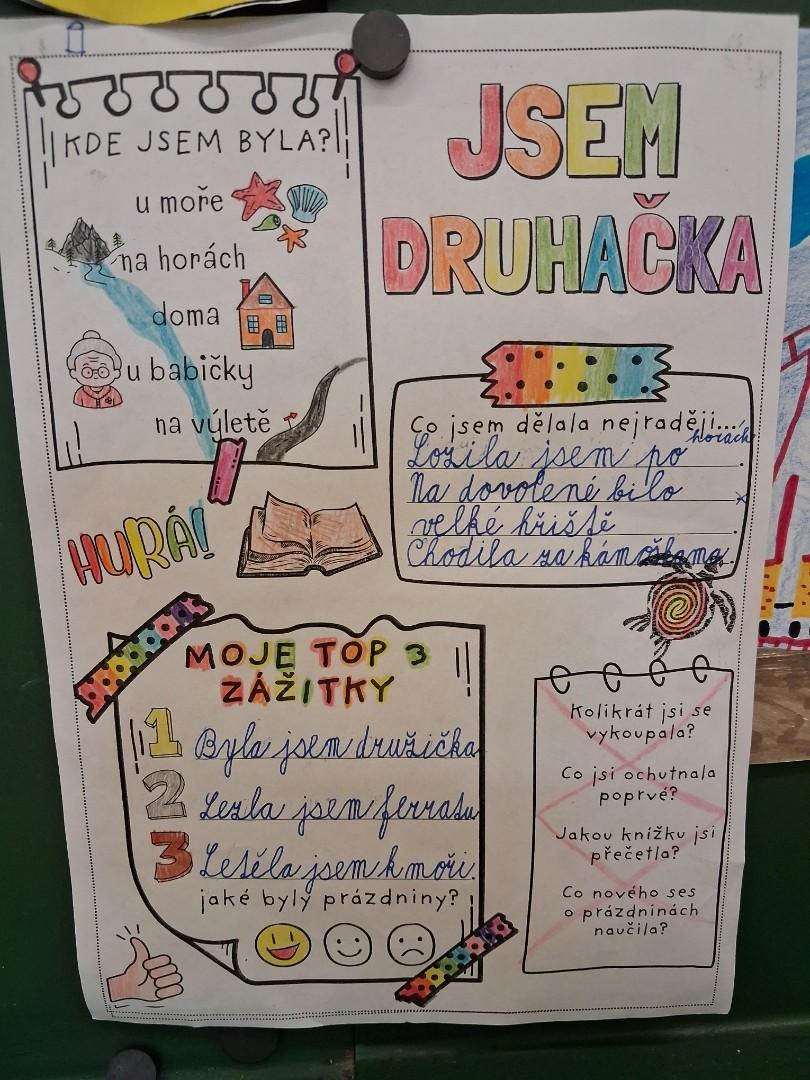 KDE JSEM BYLA?
u moře
na horách
doma
u babičky
na výletě
JSEM
DRUHAČKA
Co jsem dělala nejraději...
horách
Lozila jsem po .
Na dovolené bilo
velké hřiště .
Chodila za kámoškama.
HURÁ!
MOJE TOP 3
ZÁŽITKY
1 Byla jsem družička
2 Lezla jsem ferratu
3 Letěla jsem k moři.
jaké byly prázdniny?
Kolikrát jsi se
vykoupala?
Co jsi ochutnala
poprvé?
Jakou knížku jsi
přečetla?
Co nového ses
o prázdninách
naučila?